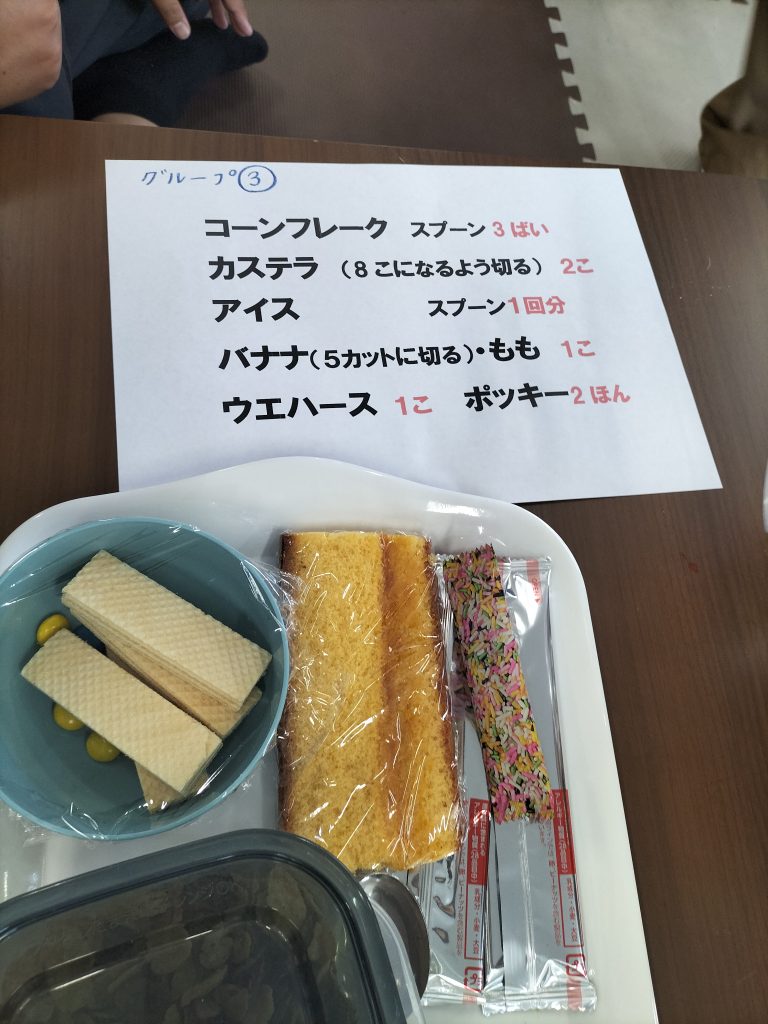 グループ③
コーンフレーク スプーン3ばい
カステラ (8こになるよう切る) 2こ
アイス スプーン1回分
バナナ(5カットに切る)・もも 1こ
ウエハース 1こ ポッキー2ほん